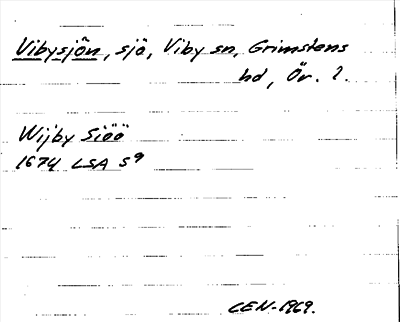 Vibysjön, sjö, Viby sn, Grimstens
hd, Ör. l.
Wijby Siöö
1674 LSA S9
CEN-1969.